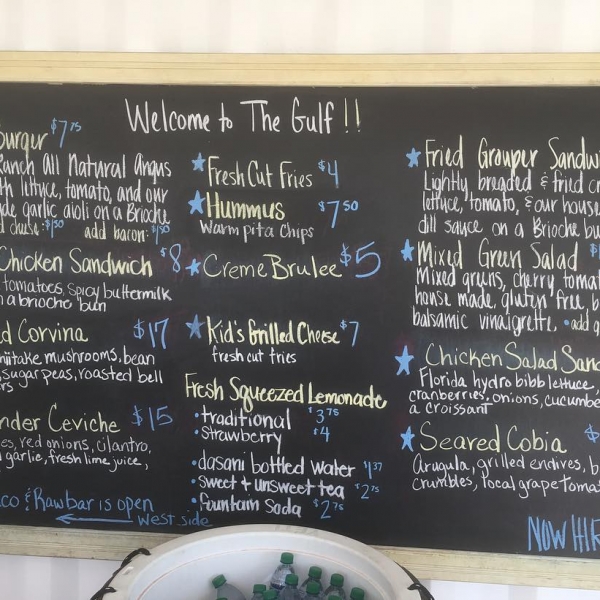 Welcome to The Gulf !!
Burger $7.75
Ranch All Natural Angus
th lettuce, tomato, and our
de garlic aioli on a Brioche
d cheese: $1.50 add bacon: $1.50
Chicken Sandwich $8
tomatoes, spicy buttermilk
n a brioche bun
d Corvina $17
hiitake mushrooms, bean
, sugar peas, roasted bell
rs
nder Ceviche $15
es, red onions, cilantro,
garlic, fresh lime juice,
co & Rawbar is open
West side
Fresh Cut Fries $4
Hummus $7.50
Warm pita chips
Creme Brulee $5
Kid's Grilled Cheese $7
fresh cut fries
Fresh Squeezed Lemonade
• traditional $3.75
• strawberry $4
• dasani bottled water $1.37
• sweet + unsweet tea $2.75
• fountain soda $2.75
Fried Grouper Sandw
Lightly breaded & fried cr
lettuce, tomato, & our house
dill sauce on a Brioche bu
Mixed Green Salad $
Mixed greens, cherry tomat
house made, gluten free, b
balsamic vinaigrette. • add g
Chicken Salad Sand
Florida hydro bibb lettuce,
cranberries, onions, cucumbe
a croissant
Seared Cobia $
Arugula, grilled endives, b
crumbles, local grape tomat
NOW HIR